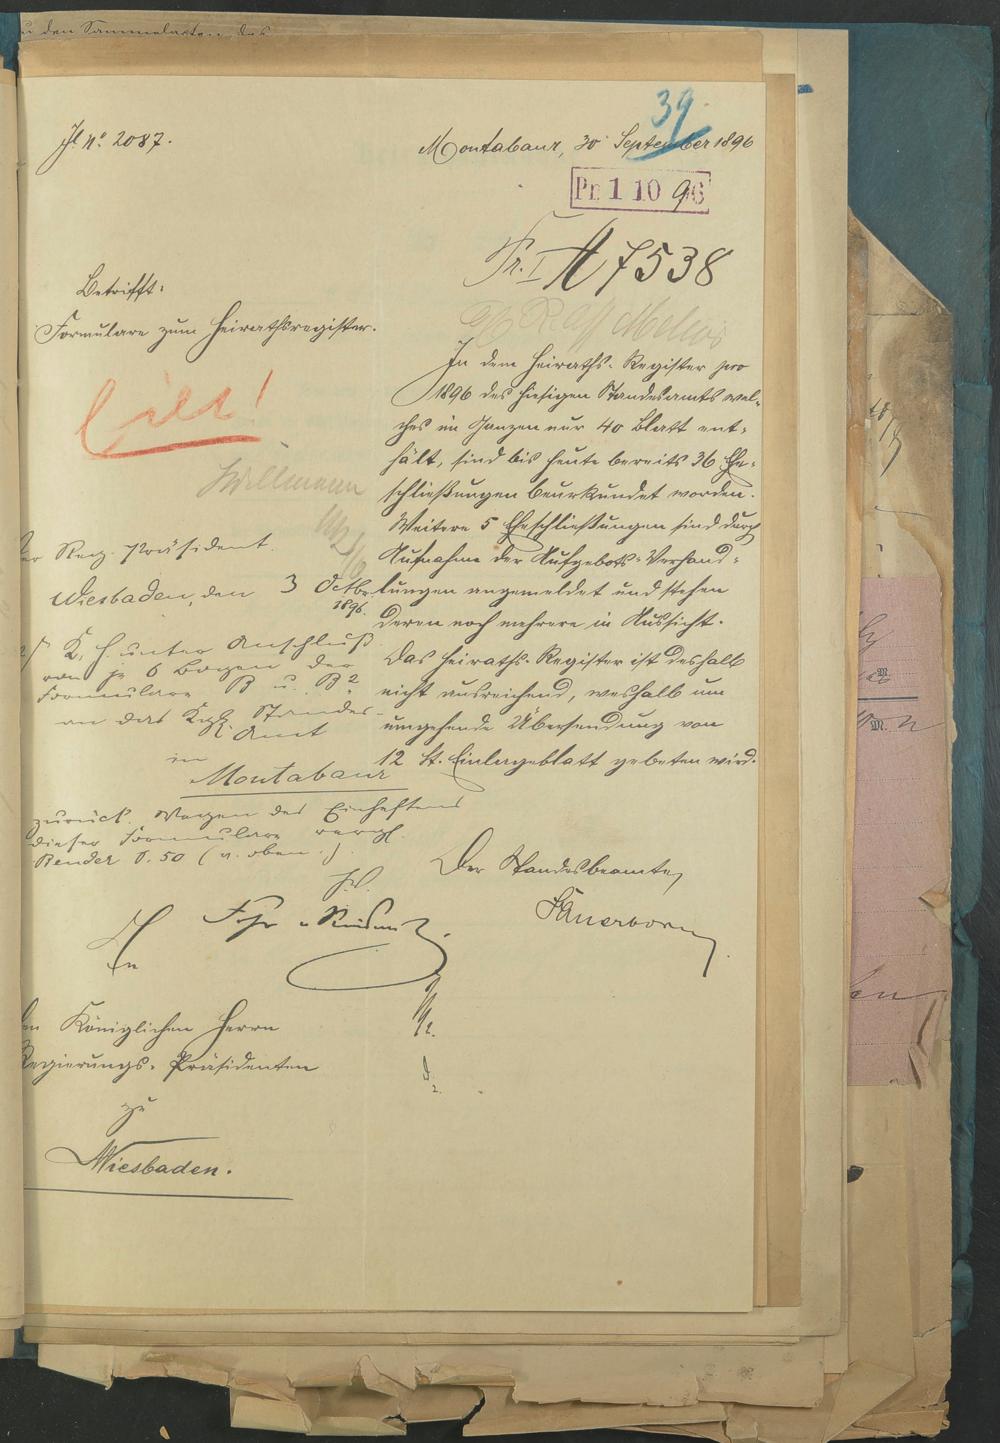 zu den Sammelakten des
39.
J. No. 2087.
Montabaur, 30 September 1896
Pr. 1 10 96
Pr. I A 7538
Betrifft:
Formulare zum Heirathsregister.
Eilt!
Willmann
In dem Heiraths-Register pro
1896 des hiesigen Standesamts wel-
ches im Ganzen nur 40 Blatt ent-
hält, sind bis heute bereits 36 Ehe-
schließungen beurkundet worden.
Weitere 5 Eheschließungen sind durch
Aufnahme der Aufgebots-Verhand-
lungen angemeldet und stehen
deren noch mehrere in Aussicht.
Das Heiraths-Register ist deshalb
nicht ausreichend, weshalb um
umgehende Übersendung von
12 St. Einlageblatt gebeten wird.
Der Standesbeamte,
Sauerborn
Der Reg. Präsident.
Wiesbaden, den 3 Octbr
1896.
K. H. unter Anschluß
von je 6 Bogen der
Formulare B u. B2
an das Kgl. Standes-
Amt
in
Montabaur
zurück. Wegen des Einheftens
dieser Formulare vergl.
Bender S. 50 (v. oben.)
An
den Königlichen Herrn
Regierungs-Präsidenten
zu
Wiesbaden.